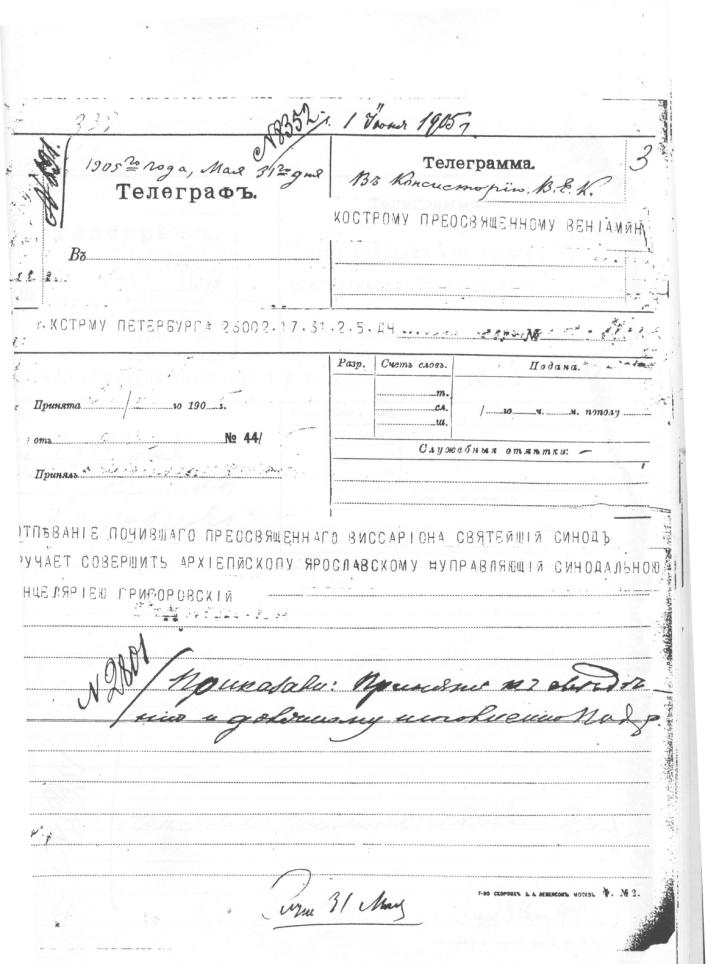 335
№ 8352
1 Іюня 1905 г.
1905го года, Мая 31го дня
Телеграфъ.
Телеграмма.
3
Въ Консисторію. В. Е. К.
КОСТРОМУ ПРЕОСВЯЩЕННОМУ ВЕНІАМИН
Въ
КСТРМУ ПЕТЕРБУРГА 23002.17.31.2.5.ДЧ
№
Разр.
Счетъ словъ.
Подана.
Принята
го 190
т.
сл.
ш.
го ч. м. пополу
отъ
№ 44/
Служебныя отмѣтки:
Принялъ
ОТПѢВАНІЕ ПОЧИВШАГО ПРЕОСВЯЩЕННАГО ВИССАРІОНА СВЯТЕЙШІЙ СИНОДЪ
РУЧАЕТ СОВЕРШИТЬ АРХІЕПІСКОПУ ЯРОСЛАВСКОМУ УПРАВЛЯЮЩІЙ СИНОДАЛЬНОЮ
НЦЕЛЯРІЕЮ ГРИГОРОВСКІЙ
№ 2801
Приказали: Принять къ свѣдѣ-
нію и должному исполненію
Т-ВО СКОРОПЕЧ. А. А. ЛЕВЕНСОНЪ. МОСКВА. Ф. № 2.
31 Мая